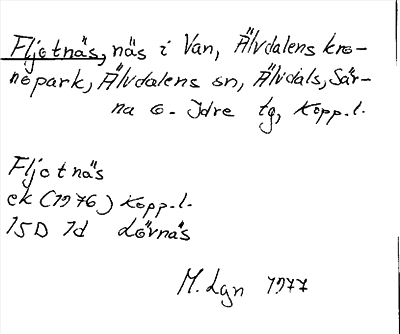 Fljotnäs, näs i Van, Älvdalens kro-
nopark, Älvdalens sn, Älvdals, Sär-
na o. Idre tg, Kopp.l.
Fljotnäs
ek (1976) Kopp.l.
15D 1d Lövnäs
M. Lgn 1977